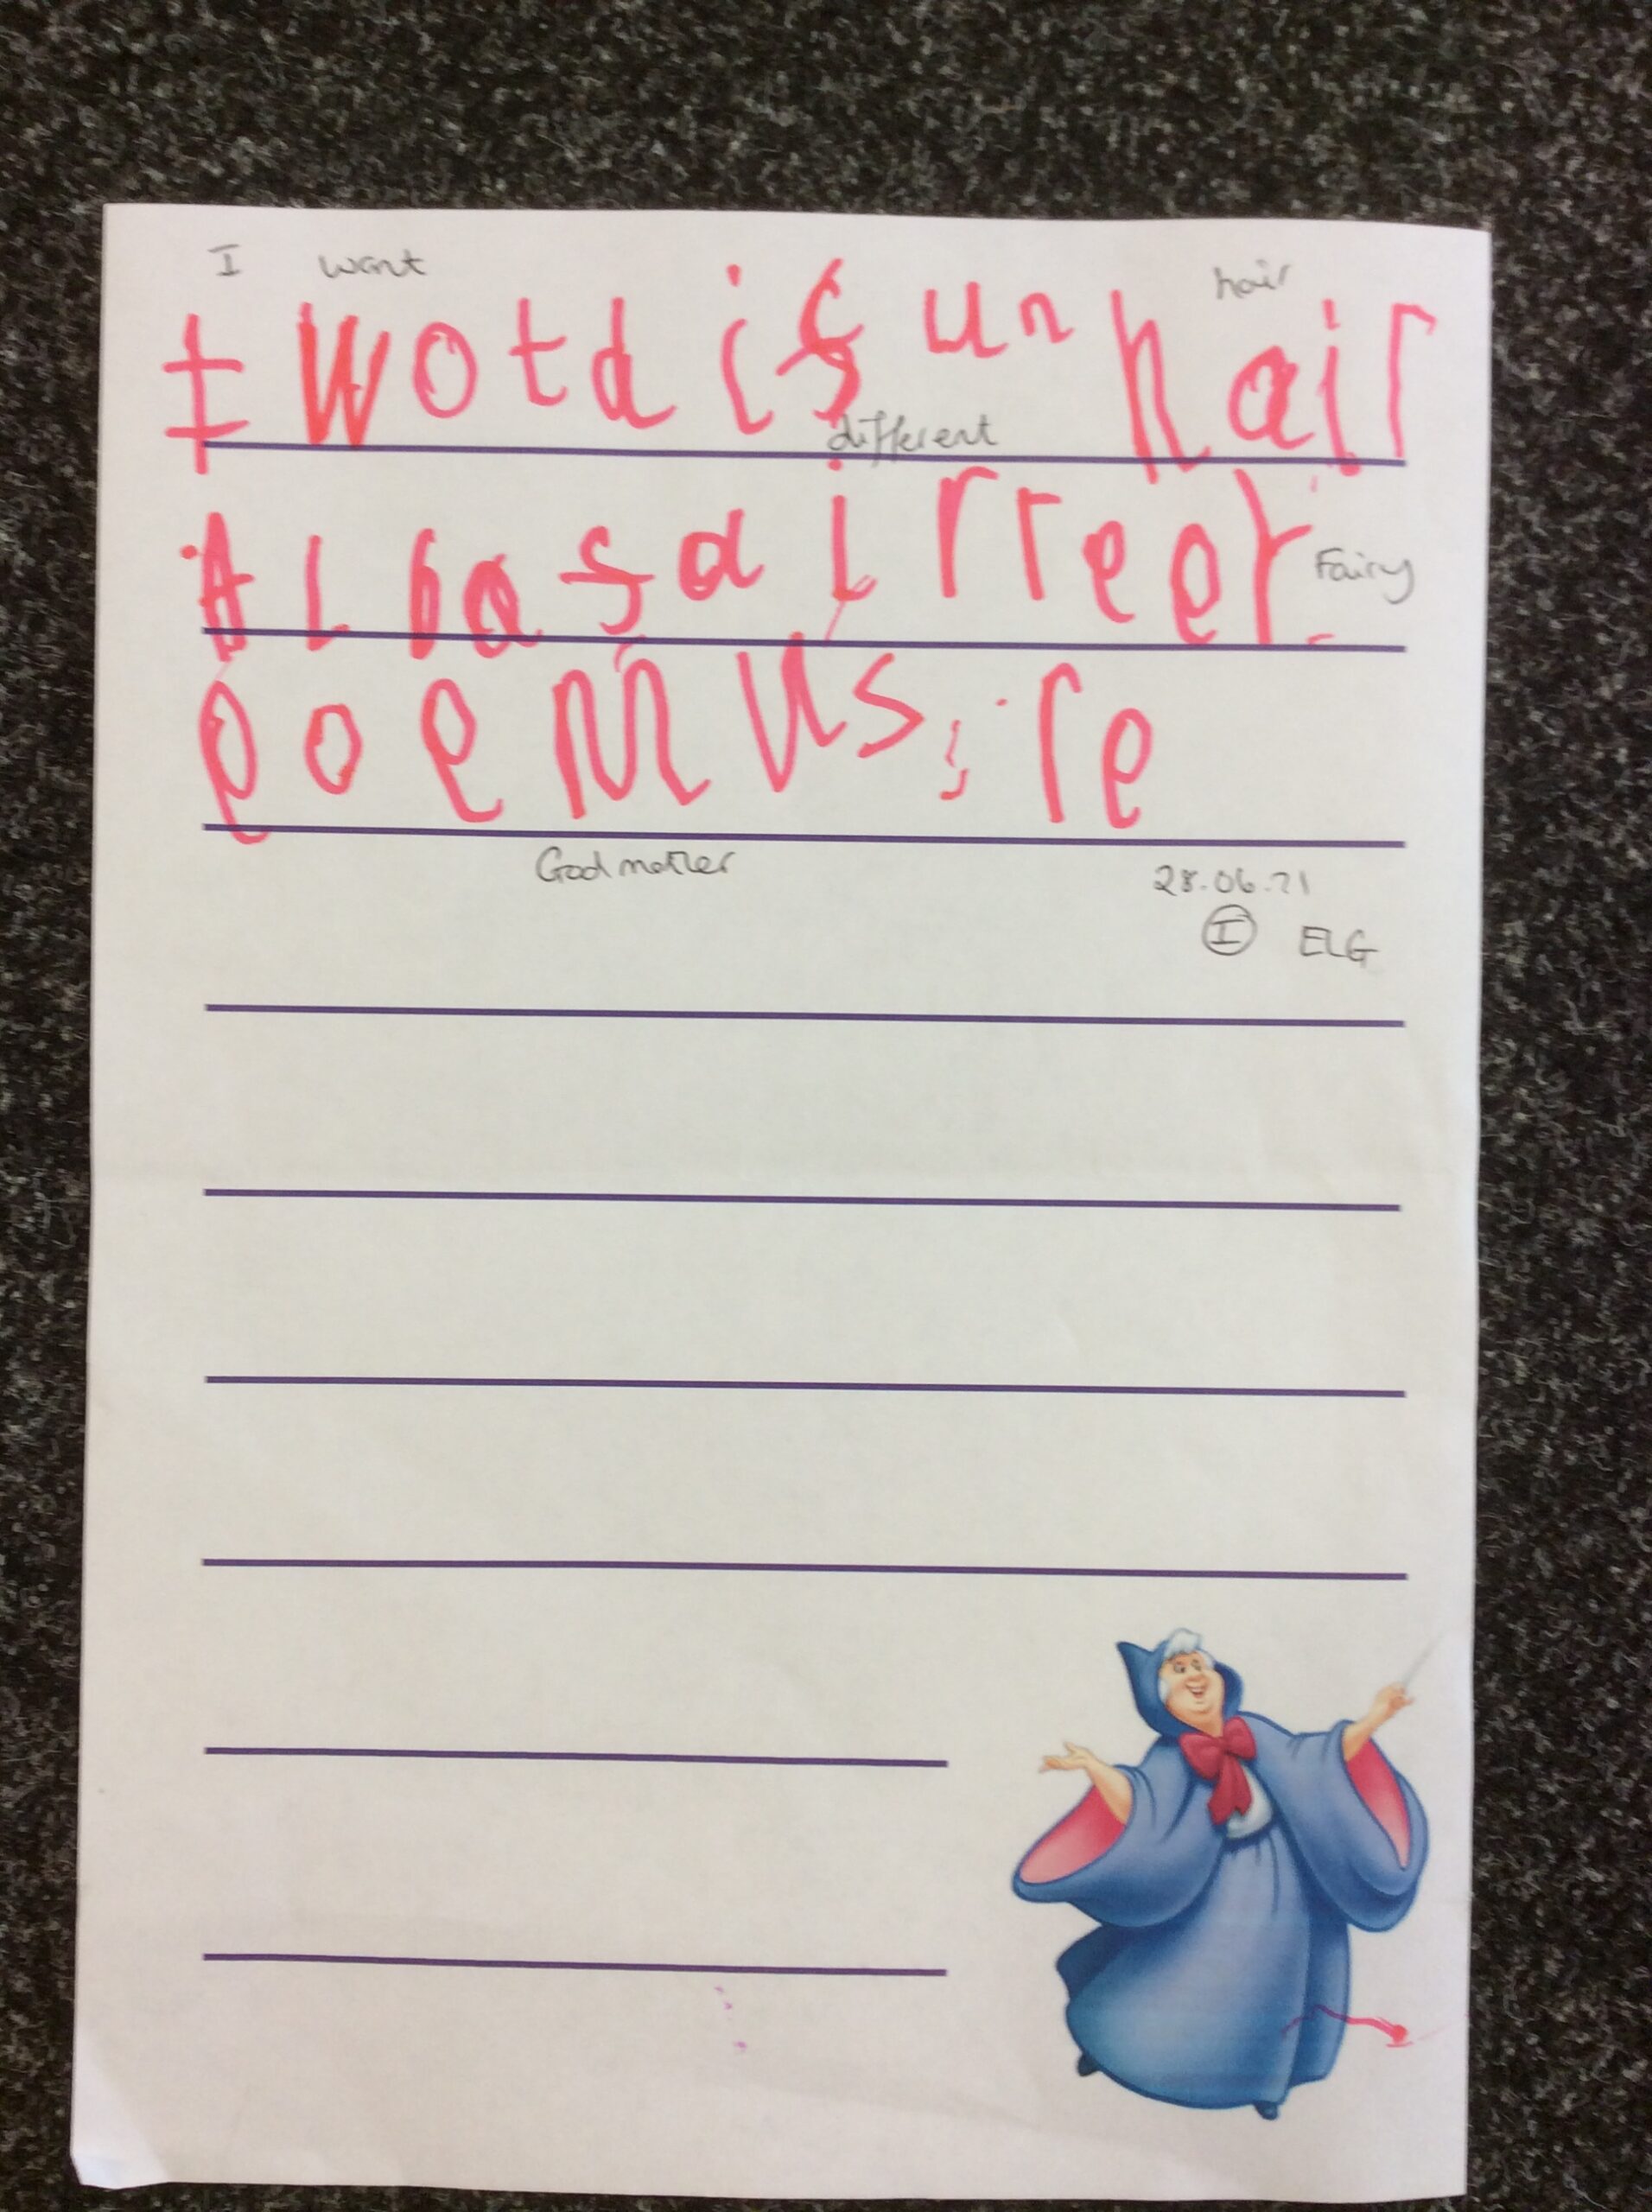 I want hair
I wotd if un hair
different
A l b a f a i r r e e r Fairy
e o e m u s r e
Godmother 28.06.21
I ELG